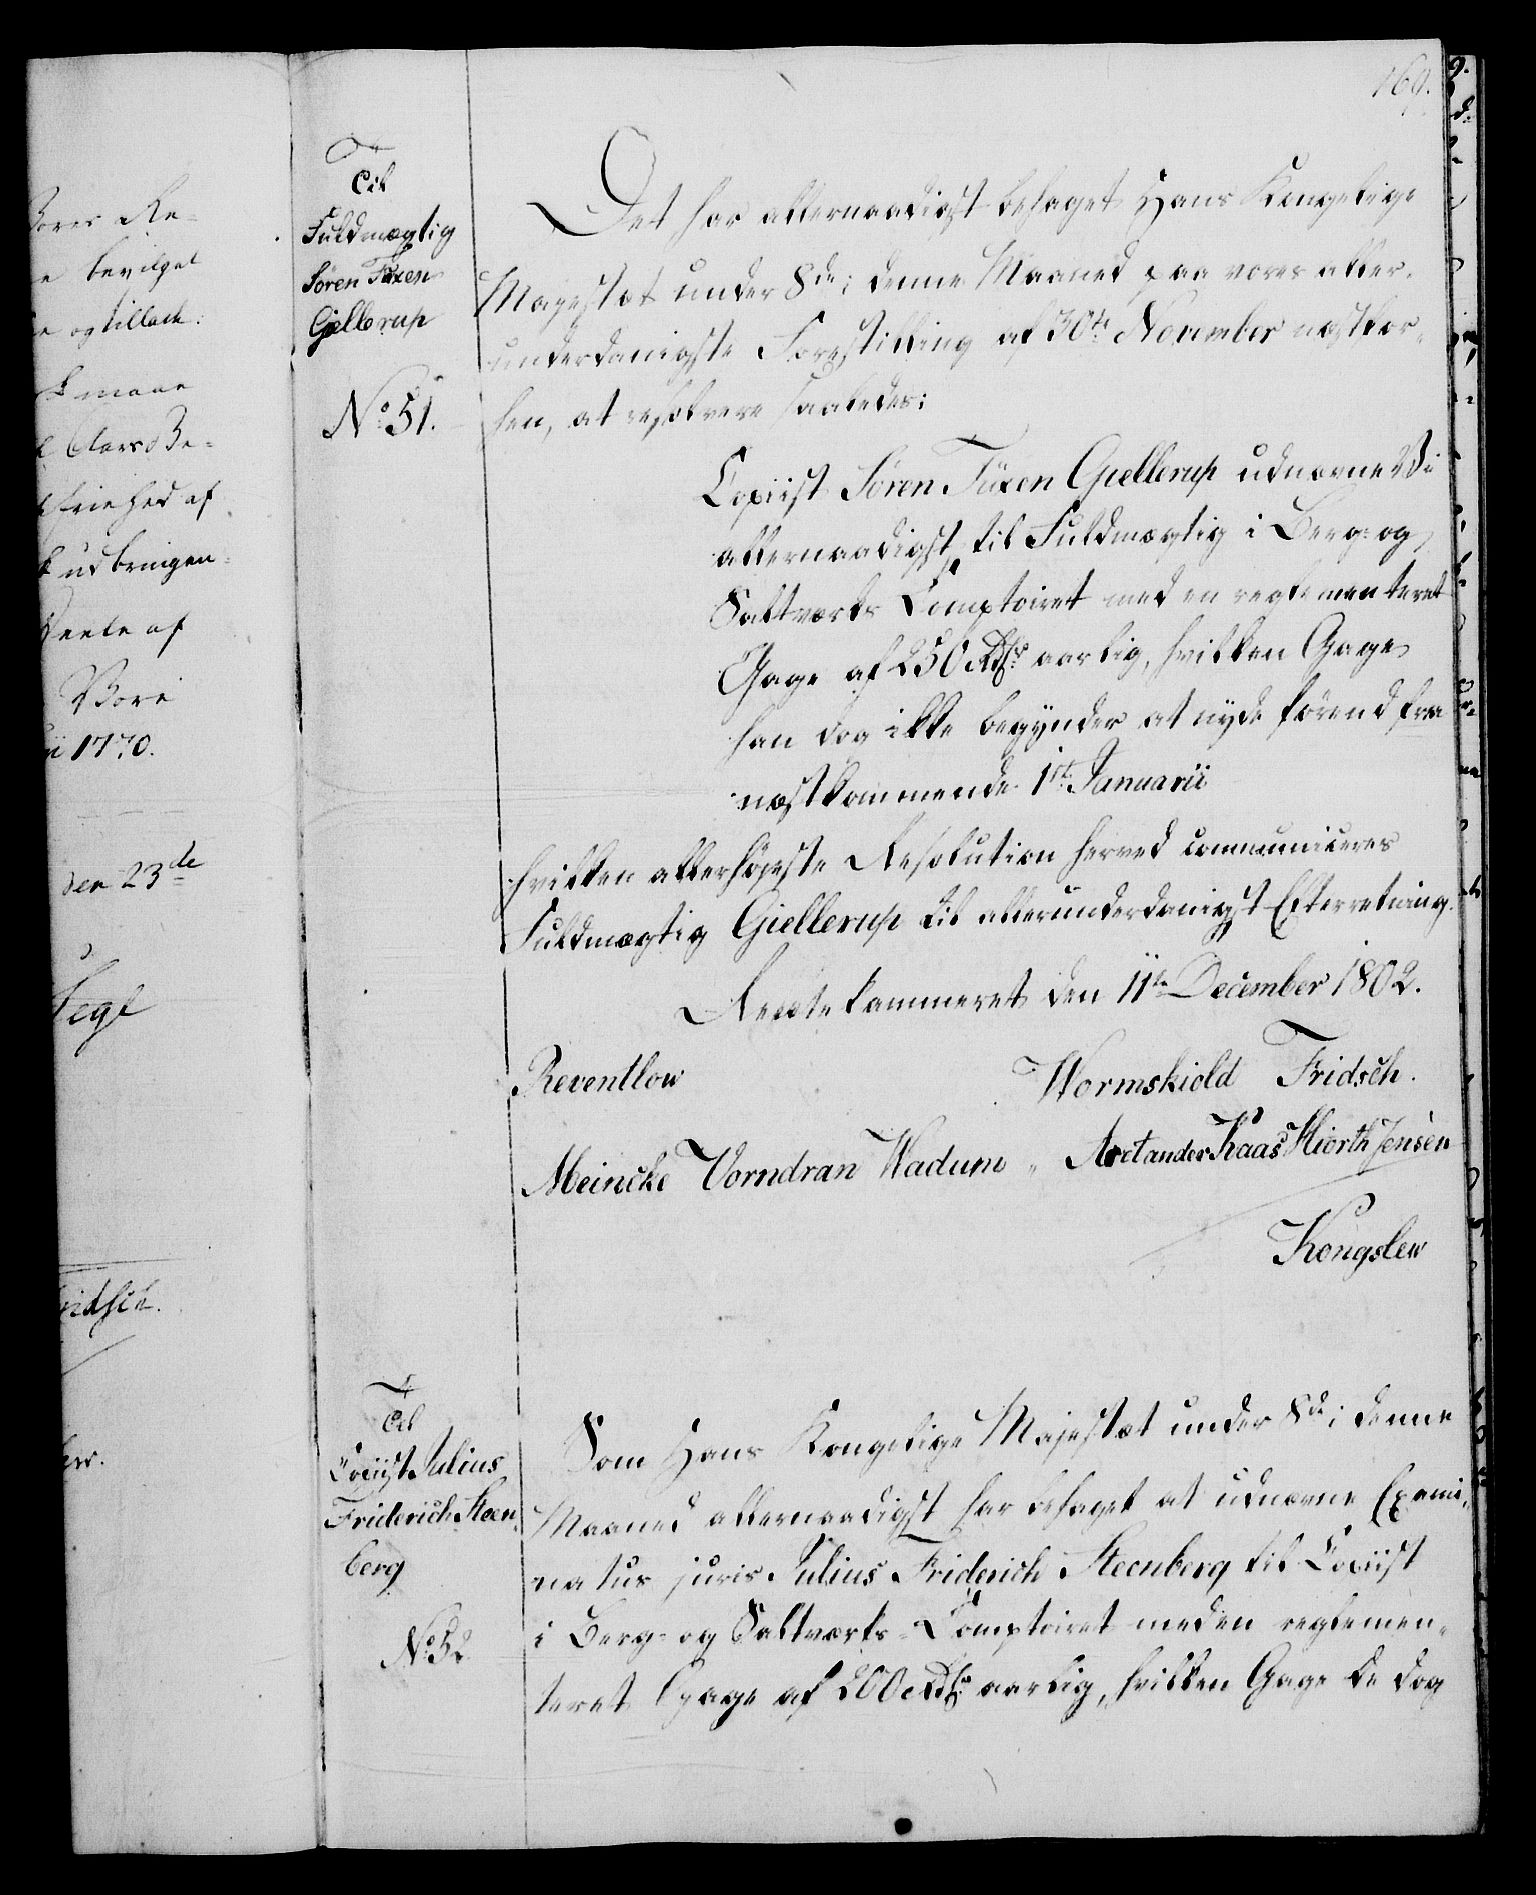 169.
Til
Fuldmægtig
Sören Tüxen
Gjellerup
No 51.
Det har allernaadigst behaget Hans Kongelige
Majestæt under 8de: denne Maaned paa vores aller-
underdanigste Forestilling af 30te November næstfor-
hen, at resolvere saaledes:
Copiist Sören Tüxen Giellerup udnævne Vi
allernaadigst til Fuldmægtig i Berg- og
Saltværks Comptoiret med en reglementeret
Gage af 250 Rdlr aarlig, hvilken Gage
han dog ikke begynder at nyde förend fra
næstkommende 1ste Januarii
hvilken allerhöjeste Resolution herved communiceres
Fuldmægtig Giellerup til allerunderdanigst Efterretning.
Rentekammeret den 11te December 1802.
Reventlow
Wormskiold Fridsch.
Meincke Vorndran Wadum
Arctander Kaas Hiorth Jensen
Kongslew
Til
Copiist Julius
Friderich Steen-
berg
No 52
Som Hans Kongelige Majestæt under 8de: denne
Maaned allernaadigst har behaget at udnævne Exami-
natus juris Julius Friderich Steenberg til Copiist
i Berg- og Saltværks-Comptoiret med en reglemen-
teret Gage af 200 Rdlr aarlig, hvilken Gage De dog
Vores Re-
bevilget
og tillade:
maae
Aars Be-
Friehed af
udbringen-
Deele af
Vore
1770.
den 23de